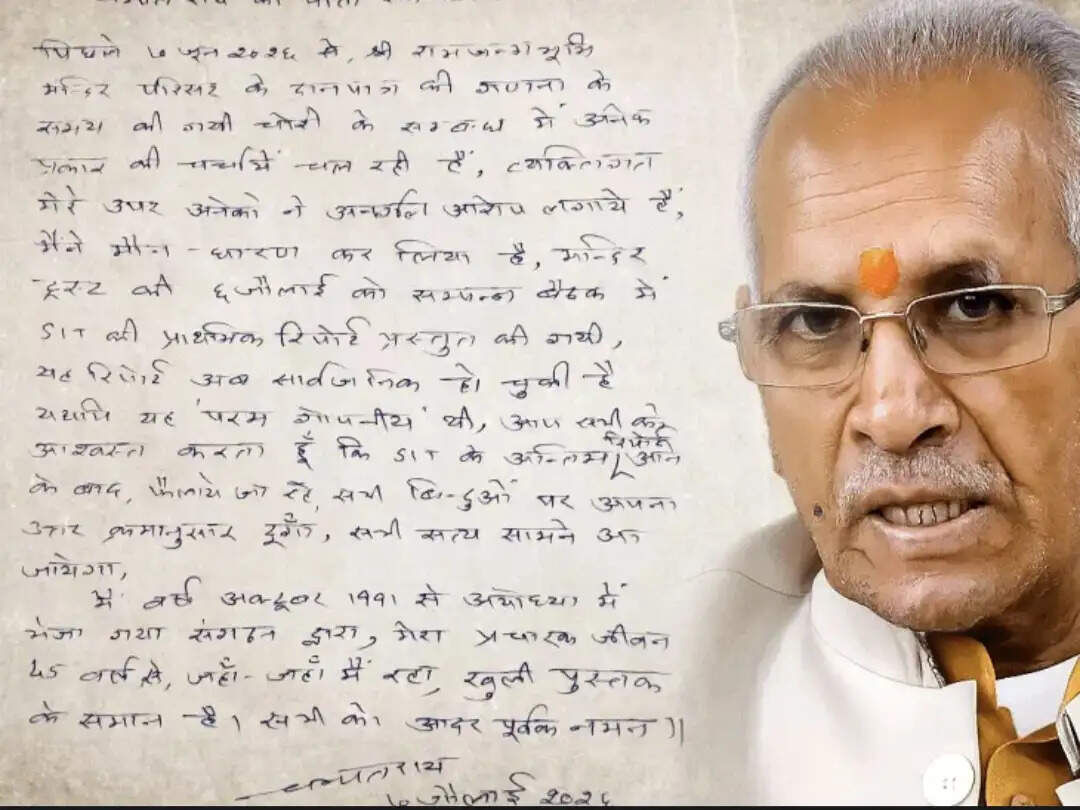 की पाती
पिछले ७ जून २०२६ से, श्री रामजन्मभूमि
मन्दिर परिसर के दानपात्र की गणना के
समय की गयी चोरी के सम्बन्ध में अनेक
प्रकार की चर्चायें चल रही हैं, व्यक्तिगत
मेरे उपर अनेकों ने अनर्गल आरोप लगाये हैं,
मैंने मौन-धारण कर लिया है, मन्दिर
ट्रस्ट की ६ जौलाई को सम्पन्न बैठक में
SIT की प्राथमिक रिपोर्ट प्रस्तुत की गयी,
यह रिपोर्ट अब सार्वजनिक हो चुकी है
यद्यपि यह "परम गोपनीय" थी, आप सभी को
आश्वस्त करता हूँ कि SIT के अन्तिम रिपोर्ट आने
के बाद, फैलाये जा रहे, सभी बिन्दुओं पर अपना
उत्तर क्रमानुसार दूँगा, सभी सत्य सामने आ
जायेगा,
मैं वर्ष अक्टूबर 1991 से अयोध्या में
भेजा गया संगठन द्वारा, मेरा प्रचारक जीवन
45 वर्ष से, जहाँ-जहाँ मैं रहा, खुली पुस्तक
के समान है। सभी को आदर पूर्वक नमन॥
चम्पतराय
७ जौलाई २०२६